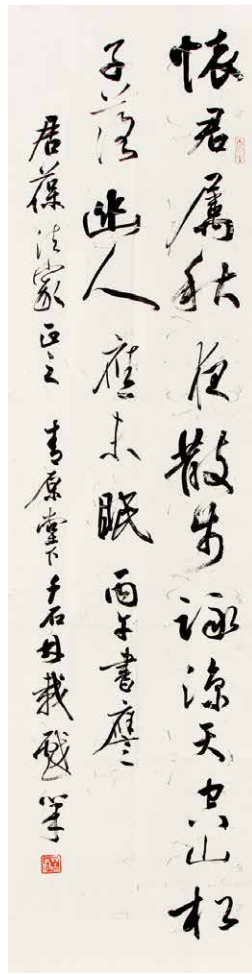 懷君屬秋夜散步詠涼天空山松
子落幽人應未眠 丙午書應
居葆法家正之 青原堂下千石 栽戲筆